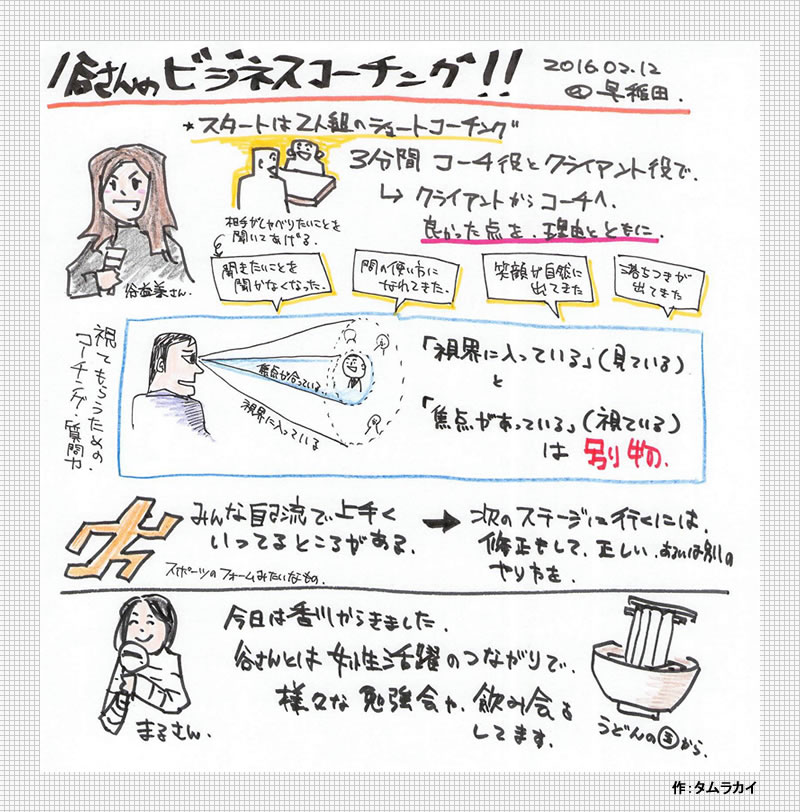 谷さんのビジネスコーチング!!
2016.02.12
@早稲田.
★スタートは2人組のショートコーチング
3分間 コーチ役とクライアント役で.
↳ クライアントからコーチへ.
良かった点を.理由とともに.
相手がしゃべりたいことを
聞いてあげる.
谷益美さん.
聞きたいことを
聞かなくなった.
間の使い方に
なれてきた.
笑顔が自然に
出てきた
落ちつきが
出てきた
視てもらうための.
コーチング.質問力
焦点が合っている.
視界に入っている
「視界に入っている」(見ている)
と
「焦点があっている」(視ている)
は 別物.
みんな自己流で上手く
いってるところがある.
スポーツのフォームみたいなもの.
→ 次のステージに行くには.
修正をして.正しい.あるいは別の
やり方を.
まるさん.
今日は香川からきました.
谷さんとは女性活躍のつながりで.
様々な勉強会や.飲み会を
してます.
うどんの国から.
作:タムラカイ